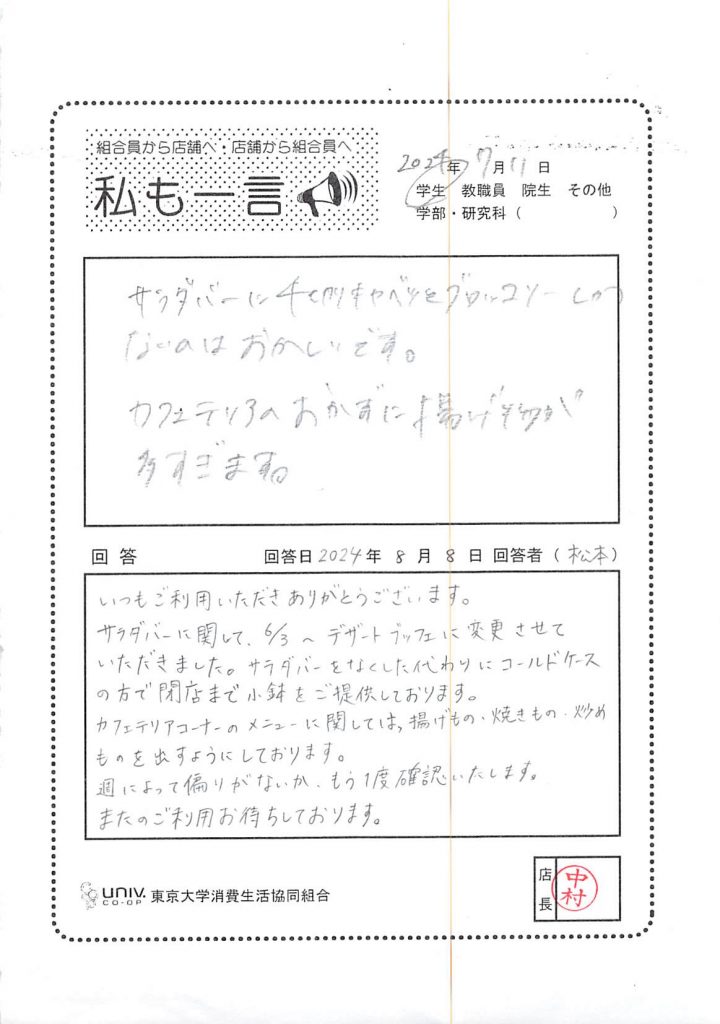 組合員から店舗へ・店舗から組合員へ
私も一言
2024年 7月 11日
学生 教職員 院生 その他
学部・研究科（ ）
サラダバーに千切りキャベツとブロッコリーしか
ないのはおかしいです。
カフェテリアのおかずに揚げ物が
多すぎます。
回答 回答日2024年 8月 8日 回答者（松本）
いつもご利用いただきありがとうございます。
サラダバーに関して、6/3〜デザートブッフェに変更させて
いただきました。サラダバーをなくした代わりにコールドケース
の方で閉店まで小鉢をご提供しております。
カフェテリアコーナーのメニューに関しては、揚げもの・焼きもの・炒め
ものを出すようにしております。
週によって偏りがないか、もう1度確認いたします。
またのご利用お待ちしております。
UNIV. CO-OP 東京大学消費生活協同組合
店長 中村